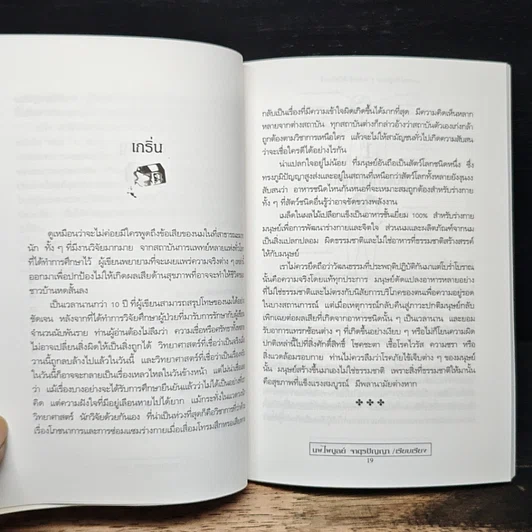 เกริ่น
ดูเหมือนว่าจะไม่ค่อยมีใครพูดถึงข้อเสียของนมในที่สาธารณะ
นัก ทั้ง ๆ ที่มีงานวิจัยมากมาย จากสถาบันการแพทย์หลายแห่ง
ที่ได้ทำการศึกษาไว้ ผู้เขียนพยายามที่จะเผยแพร่ความจริงต่าง ๆ
ออกมาเพื่อปกป้องไม่ให้เกิดผลเสียด้านสุขภาพที่อาจจะทำให้ชีวิต
ชาวบ้านหดสั้นลง
เป็นเวลานานกว่า 10 ปี ที่ผู้เขียนสามารถสรุปโทษของนมได้
ชัดเจน หลังจากที่ได้ทำการวิจัยศึกษาผู้ป่วยที่มารับการรักษากับผู้เขียน
จำนวนนับพันราย ท่านผู้อ่านต้องไม่ลืมว่า ความเชื่อหรือศรัทธา
อาจเปลี่ยนสิ่งผิดให้เป็นสิ่งถูกได้ วิทยาศาสตร์ที่เชื่อว่าเป็นจริงใน
วานนี้ถูกลบล้างไปแล้วในวันนี้ และวิทยาศาสตร์ที่เชื่อว่าเป็นเรื่องจริง
ในวันนี้ก็อาจจะกลายเป็นเรื่องเหลวไหลในวันข้างหน้า แต่ไม่น่าเชื่อ
ว่า แม้เรื่องบางอย่างจะได้รับการศึกษายืนยันแล้วว่าไม่ได้เป็นอย่างที่
คิด แต่ความฝังใจที่มีอยู่เลือนหายไปได้ยาก แม้กระทั่งในแวดวง
วิทยาศาสตร์ นักวิจัยด้วยกันเอง ที่น่าเป็นห่วงที่สุดก็คือวิชาการที่ว่าด้วย
เรื่องโภชนาการและการซ่อมแซมร่างกายเมื่อเสื่อมโทรมสึกหรอเสียหาย
กลับเป็นเรื่องที่มีความเข้าใจผิดเกิดขึ้นได้มากที่สุด มีความคิดเห็นหลาก
หลายจากต่างสถาบัน ทุกสถาบันต่างก็กล่าวอ้างว่าสถาบันตัวเองเก่งกล้า
ถูกต้องตามวิชาการเหนือใคร แล้วจะไม่ให้สามัญชนทั่วไปเกิดความสับสน
ว่าจะเชื่อใครดีได้อย่างไรกัน
น่าแปลกใจอยู่ไม่น้อย ที่มนุษย์อันถือเป็นสัตว์โลกชนิดหนึ่ง ซึ่ง
ทรงภูมิปัญญาสูงส่งและอยู่ในสถานที่เหนือกว่าสัตว์โลกทั้งหลายยังสุนงง
สับสนว่า อาหารชนิดไหนกันหนอที่จะเหมาะสมถูกต้องสำหรับร่างกาย
ทั้ง ๆ ที่สัตว์ชนิดอื่นรู้ว่าอาจขัดขวางพลังงาน
เมล็ดในผลไม้เปลือกแข็งเป็นอาหารชั้นเยี่ยม 100% สำหรับร่างกาย
มนุษย์เพื่อการพัฒนาร่างกายและจิตใจ ส่วนนมและผลิตภัณฑ์จากนม
เป็นสิ่งแปลกปลอม ผิดธรรมชาติและไม่ใช่อาหารที่ธรรมชาติสร้างสรรค์
ให้กับมนุษย์
เราไม่ควรยึดถือว่าวัฒนธรรมที่ประพฤติปฏิบัติกันมาแต่โบร่ำโบราณ
นั้นคือความจริงโดยแท้ทุกประการ มนุษย์คัดแปลงอาหารหลายอย่าง
ที่ไม่ใช่ธรรมชาติและไม่ตรงกับนิสัยการบริโภคของตนเพื่อความอยู่รอด
ในบางสถานการณ์ แต่เมื่อเหตุการณ์กลับคืนสู่ภาวะปกติมนุษย์กลับ
เพิกเฉยต่อผลเสียที่เกิดจากอาหารชนิดนั้น ๆ เป็นเวลานาน และยอม
รับอาการแทรกซ้อนต่าง ๆ ที่เกิดขึ้นอย่างเงียบ ๆ หรือไม่ก็โยนความผิด
ปกติเหล่านี้ไปที่สิ่งศักดิ์สิทธิ์ โชคชะตา เชื้อโรค ไวรัส ความชรา หรือ
สิ่งแวดล้อมรอบกาย ท่านไม่ควรลืมว่าโรคภัยไข้เจ็บต่าง ๆ ของมนุษย์
นั้น มนุษย์สร้างขึ้นมาเองไม่ใช่ธรรมชาติ เพราะสิ่งที่ธรรมชาติให้มานั้น
คือสุขภาพที่แข็งแรงสมบูรณ์ มีพลานามัยต่างหาก
นพ.ไพบูลย์ จาตุรปัญญา /เรียบเรียง
19